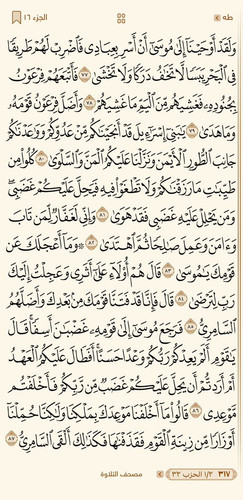 طه
الجزء ١٦
وَلَقَدْ أَوْحَيْنَا إِلَىٰ مُوسَىٰ أَنْ أَسْرِ بِعِبَادِى فَٱضْرِبْ لَهُمْ طَرِيقًا
فِى ٱلْبَحْرِ يَبَسًا لَّا تَخَٰفُ دَرَكًا وَلَا تَخْشَىٰ ٧٧ فَأَتْبَعَهُمْ فِرْعَوْنُ
بِجُنُودِهِۦ فَغَشِيَهُم مِّنَ ٱلْيَمِّ مَا غَشِيَهُمْ ٧٨ وَأَضَلَّ فِرْعَوْنُ قَوْمَهُۥ
وَمَا هَدَىٰ ٧٩ يَٰبَنِىٓ إِسْرَٰٓءِيلَ قَدْ أَنجَيْنَٰكُم مِّنْ عَدُوِّكُمْ وَوَٰعَدْنَٰكُمْ
جَانِبَ ٱلطُّورِ ٱلْأَيْمَنَ وَنَزَّلْنَا عَلَيْكُمُ ٱلْمَنَّ وَٱلسَّلْوَىٰ ٨٠ كُلُوا۟ مِن
طَيِّبَٰتِ مَا رَزَقْنَٰكُمْ وَلَا تَطْغَوْا۟ فِيهِ فَيَحِلَّ عَلَيْكُمْ غَضَبِى ۖ
وَمَن يَحْلِلْ عَلَيْهِ غَضَبِى فَقَدْ هَوَىٰ ٨١ وَإِنِّى لَغَفَّارٌ لِّمَن تَابَ
وَءَامَنَ وَعَمِلَ صَٰلِحًا ثُمَّ ٱهْتَدَىٰ ٨٢ ۞ وَمَآ أَعْجَلَكَ عَن
قَوْمِكَ يَٰمُوسَىٰ ٨٣ قَالَ هُمْ أُو۟لَآءِ عَلَىٰٓ أَثَرِى وَعَجِلْتُ إِلَيْكَ
رَبِّ لِتَرْضَىٰ ٨٤ قَالَ فَإِنَّا قَدْ فَتَنَّا قَوْمَكَ مِنۢ بَعْدِكَ وَأَضَلَّهُمُ
ٱلسَّامِرِىُّ ٨٥ فَرَجَعَ مُوسَىٰٓ إِلَىٰ قَوْمِهِۦ غَضْبَٰنَ أَسِفًا ۚ قَالَ
يَٰقَوْمِ أَلَمْ يَعِدْكُمْ رَبُّكُمْ وَعْدًا حَسَنًا ۚ أَفَطَالَ عَلَيْكُمُ ٱلْعَهْدُ
أَمْ أَرَدتُّمْ أَن يَحِلَّ عَلَيْكُمْ غَضَبٌ مِّن رَّبِّكُمْ فَأَخْلَفْتُم
مَّوْعِدِى ٨٦ قَالُوا۟ مَآ أَخْلَفْنَا مَوْعِدَكَ بِمَلْكِنَا وَلَٰكِنَّا حُمِّلْنَآ
أَوْزَارًا مِّن زِينَةِ ٱلْقَوْمِ فَقَذَفْنَٰهَا فَكَذَٰلِكَ أَلْقَى ٱلسَّامِرِىُّ ٨٧
٣١٧ ١/٢ الحزب ٣٢
مصحف التلاوة